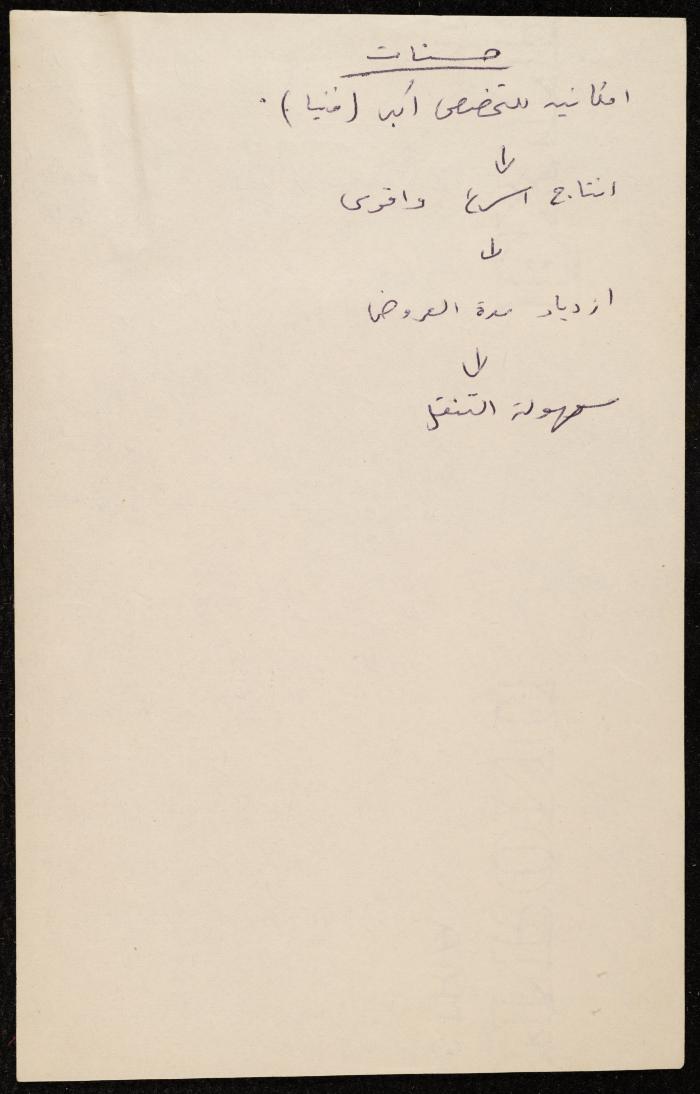 حسنات
امكانيه للتخصص أكبر (فنيا).
↓
انتاج اسرع واقوى
↓
ازدياد مدة العروض
↓
سهولة التنقل